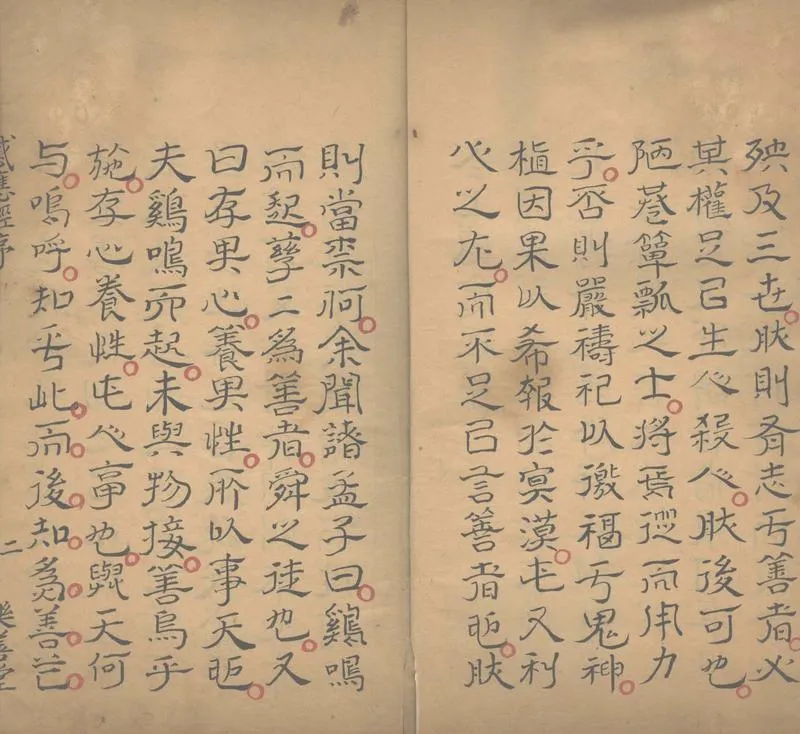 殃及三世肰則有志亏善者必
其權足已生人殺人肰後可也
陋巷簞瓢之士將焉從而用力
乎否則嚴禱祀以徼福亏鬼神
植因果以希報於冥漠屯又利
心之尤而不足已言善者也肰
則當柰何余聞諸孟子曰鷄鳴
而起孳二為善者舜之徒也又
曰存其心養其性所以事天也
夫鷄鳴而起未與物接善烏乎
施存心養性屯人事也與天何
与嗚呼知乎此而後知為善
感應經序 二 樂善堂